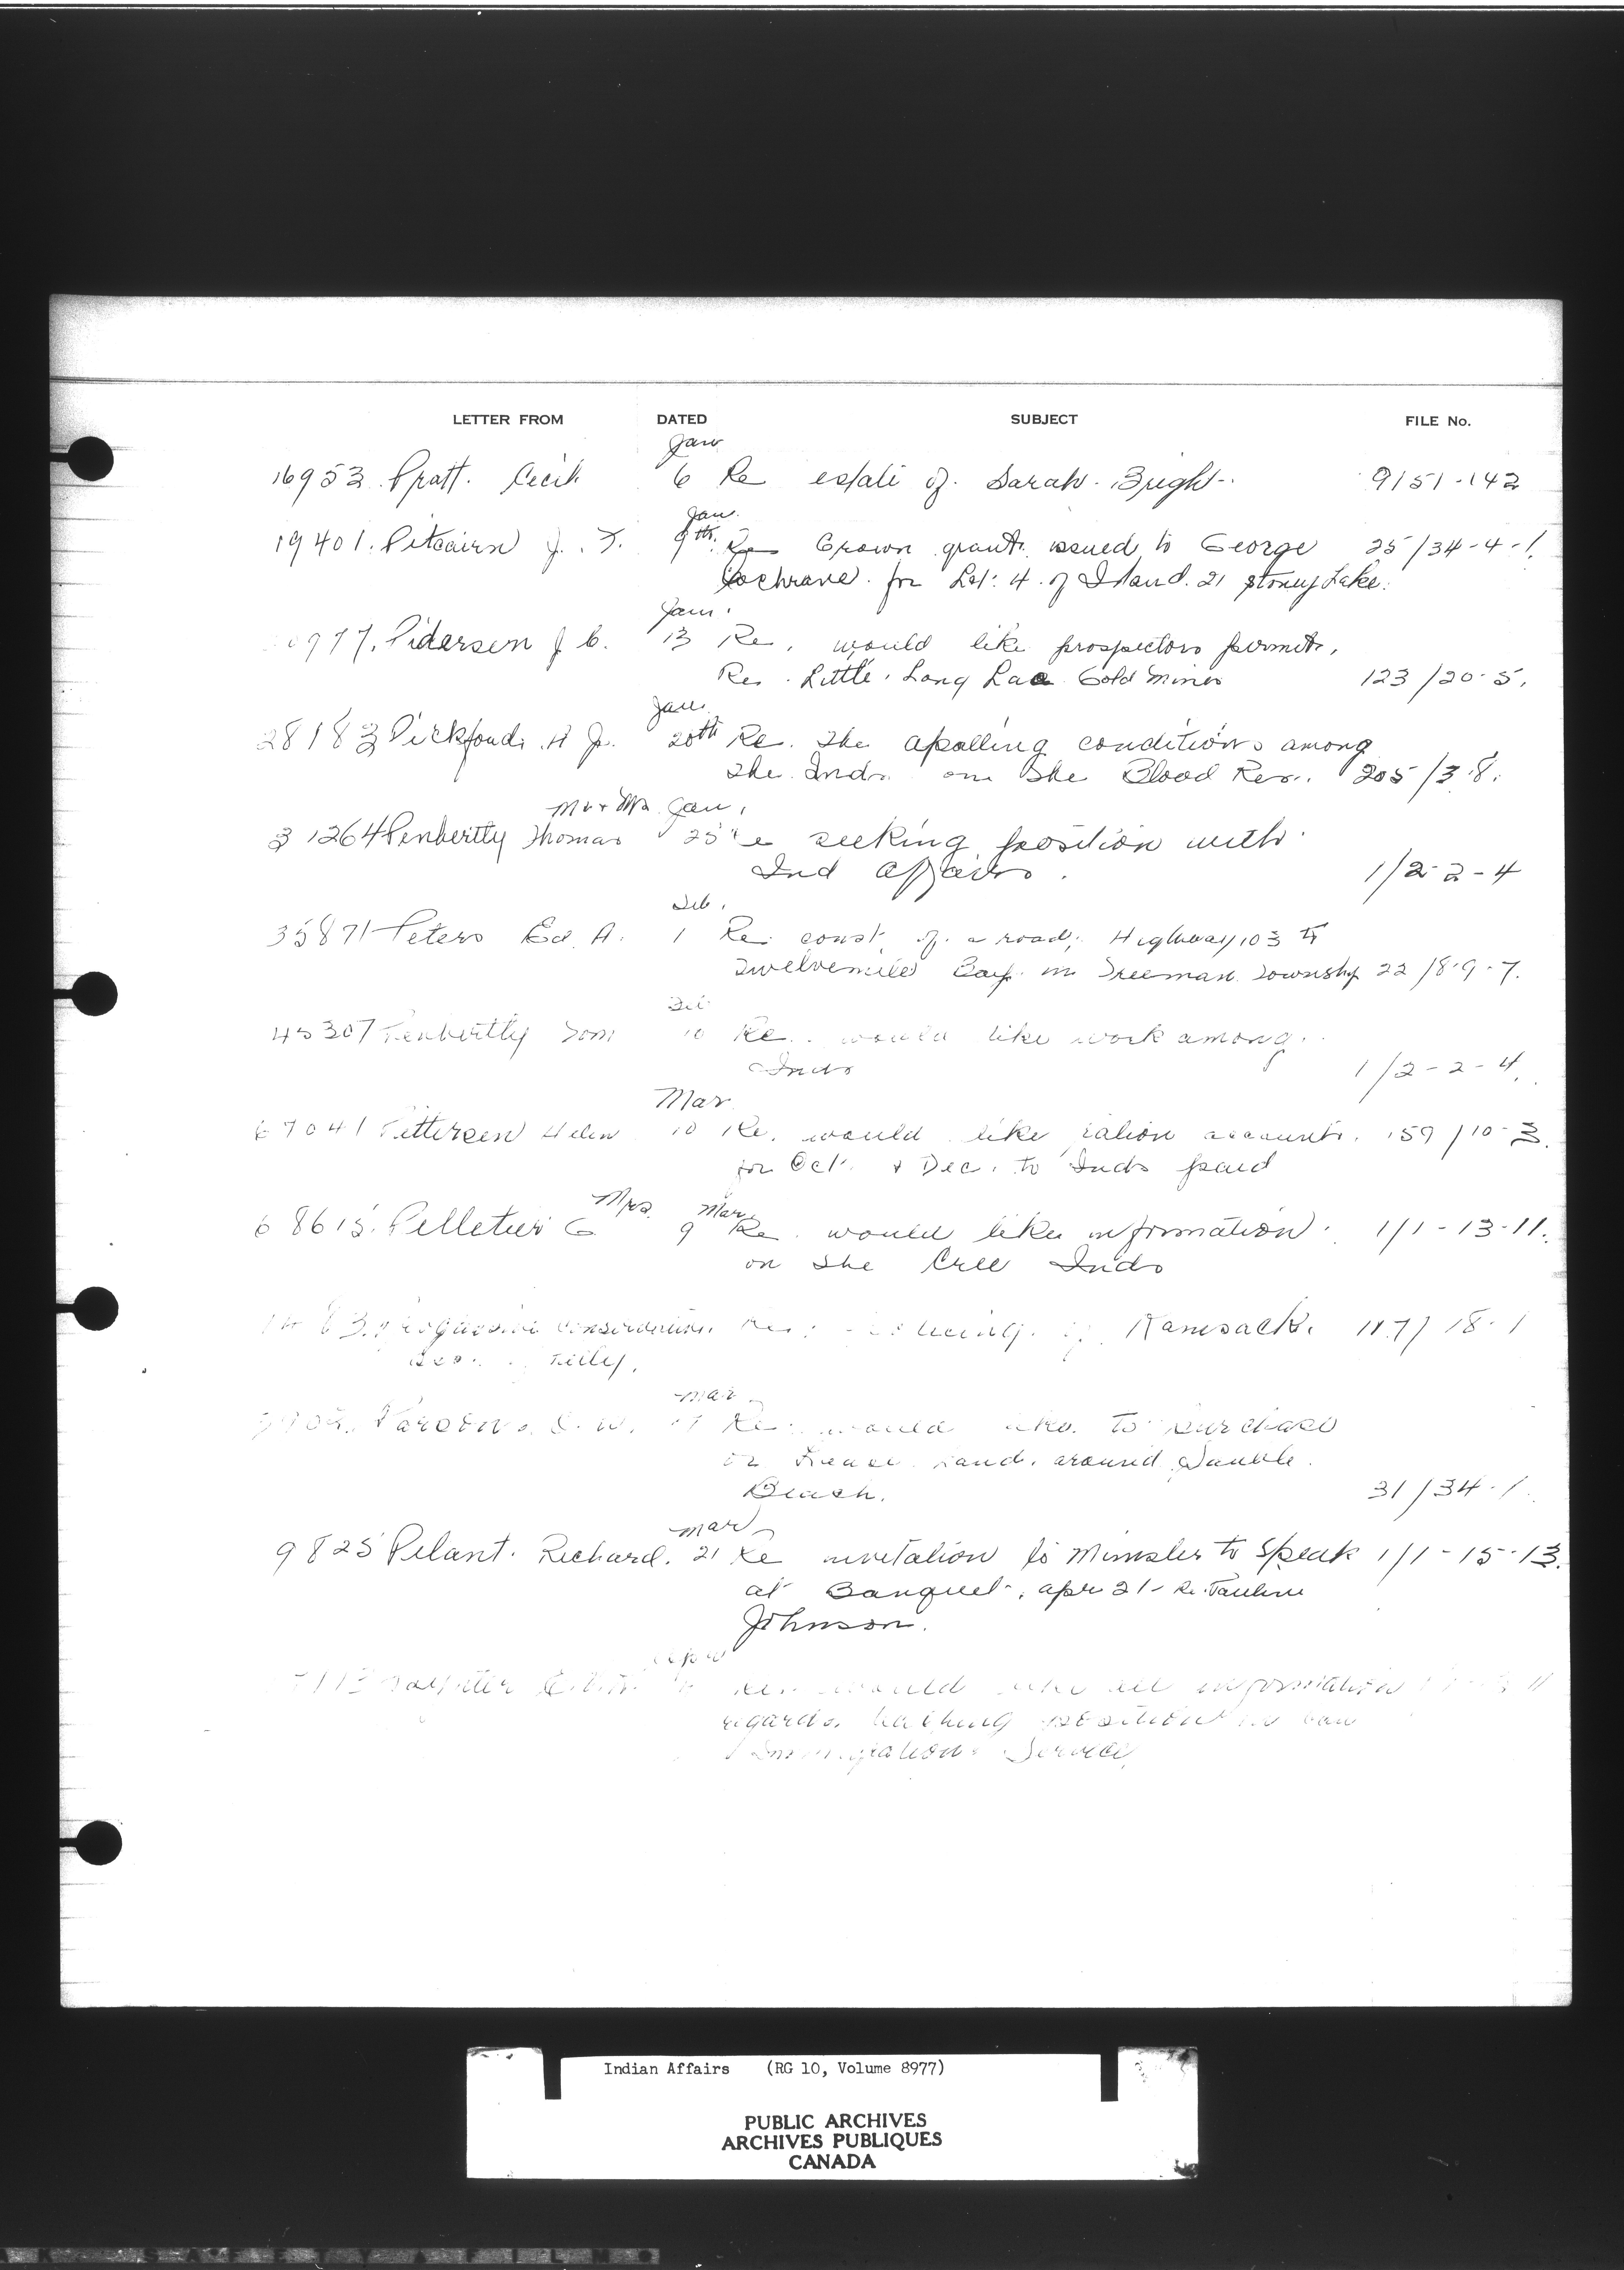 LETTER FROM DATED SUBJECT FILE No.
Jan
16953 Pratt. Cecil 6 Re estate of Sarah Bright 9151-142
Jan.
19401. Pitcairn J. F. 9th. Re Crown grant issued to George 25/34-4-1.
Cochrane for Lot. 4 of Island. 21 Stoney Lake.
Jan.
Pedersen J C. 13 Re. would like prospectors permit.
Re. Little Long Lac Gold Mines 123/20-5.
Jan.
28183 Pickford H J. 20th Re. the apalling conditions among
the Inds. on the Blood Res. 205/3-8.
Mr & Mrs. Jan.
31264 Penbertty Thomas 25 Re seeking position with
Ind Affairs. 1/2-2-4
Feb.
35871 Peters Ed. A. 1 Re. const. of a road; Highway 103 to
Twelvemile Bay in Freeman Township 22/8-9-7.
Feb
45307 Penbertty Tom 10 Re. would like work among
Inds 1/2-2-4.
Mar
67041 Pettersen Helen 10 Re. would like ration accounts. 159/10-3.
for Oct. & Dec. to Inds paid
Mrs. Mar.
68615. Pelletier G 9 Re. would like information 1/1-13-11.
on the Cree Inds
Progressive Conservation Re: of Kamsack. 117/18-1
Mar
Parsons. Re. would like to purchase
or land. around Sauble
Beach. 31/34-1
Mar
9825 Pelant. Richard. 21 Re invitation to Minister to speak 1/1-15-13.
at Banquet. Apr 21 - Re. Pauline
Johnson.
Re. would like all information
regards. teaching position
Immigration Service
Indian Affairs (RG 10, Volume 8977)
PUBLIC ARCHIVES
ARCHIVES PUBLIQUES
CANADA